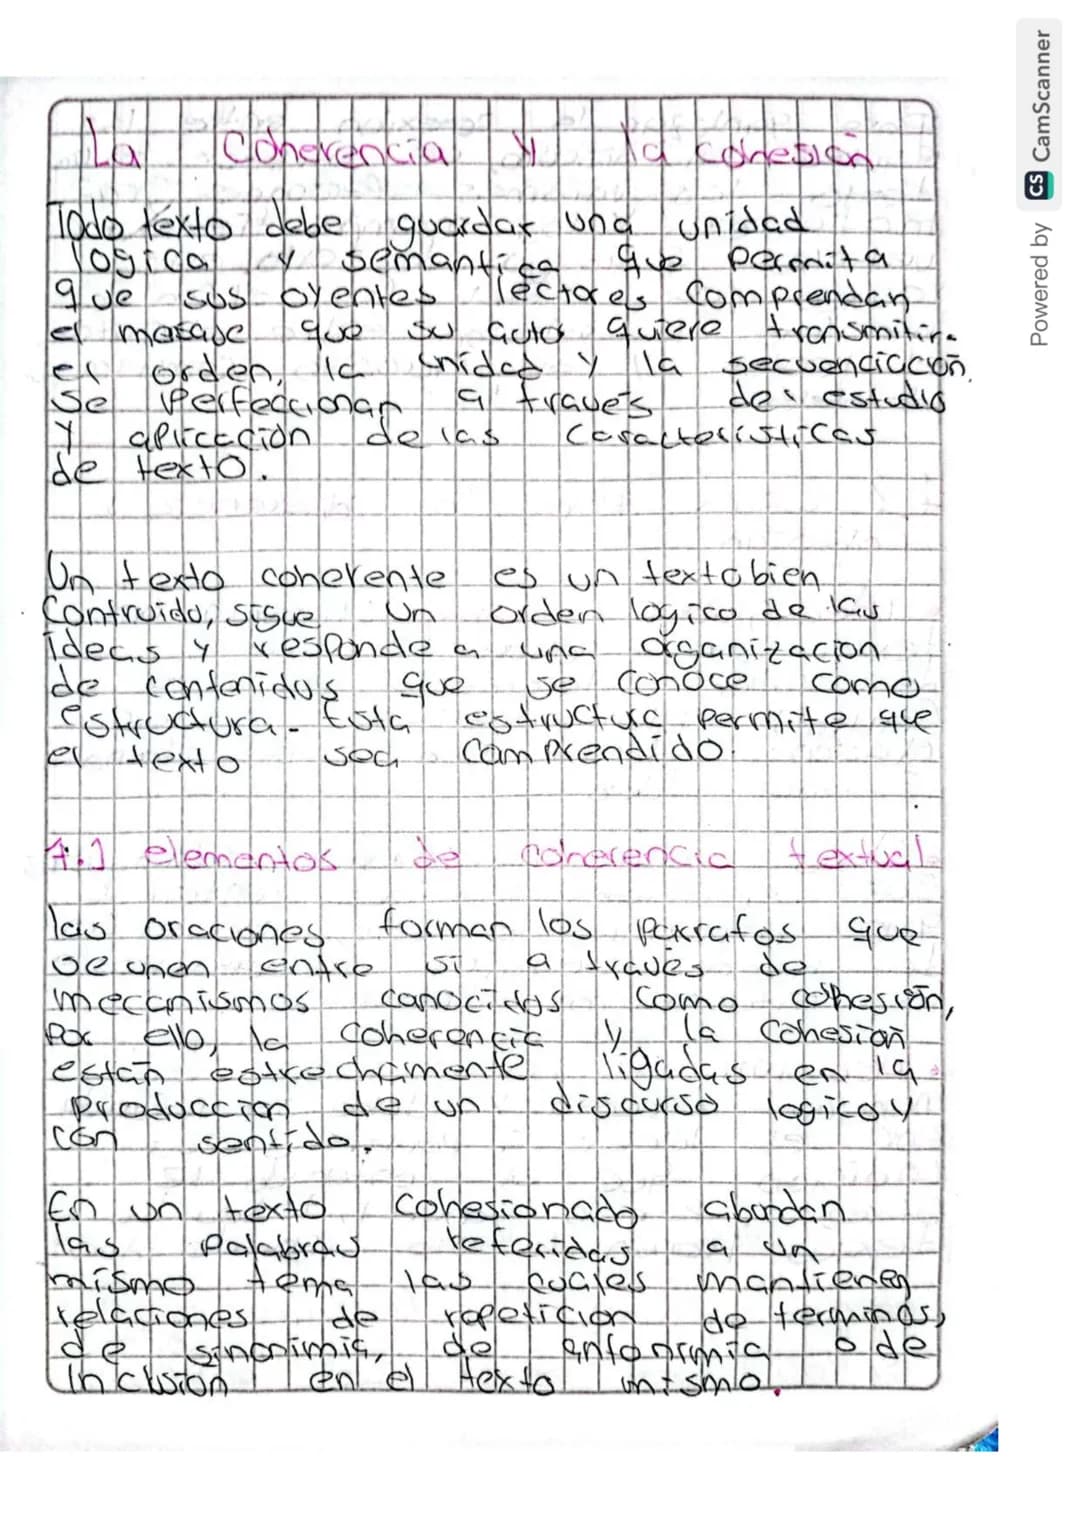 La Coherencia y la cohesión
Todo texto debe guardar una unidad
logica y semantica que permita
que sus oyentes lectores comprendan
el mesaje que su autor quiere transmitir.
el orden, la unidad y la secuenciación,
se perfeccionan a través del estudio
y aplicación de las caracteristicas
de texto.
Un texto coherente es un texto bien
Contruido, sigue un orden logico de las
ideas y responde a una organizacion
de contenidos que se conoce como
estructura. Esta estructura permite que
el texto sea comprendido.
1.1 elementos de coherencia textual
las oraciones forman los parrafos que
se unen entre sí a través de
mecanismos conocidos como cohesión,
por ello, la coherencia y la cohesion
están estrechamente ligadas en la
produccion de un discurso logico y
con sentido.
En un texto cohesionado abundan
las palabras referidas a un
mismo tema las cuales mantienen
relaciones de repeticion de terminos,
de sinonimia, de antonimia o de
inclusion en el texto mismo.
Powered by CS CamScanner